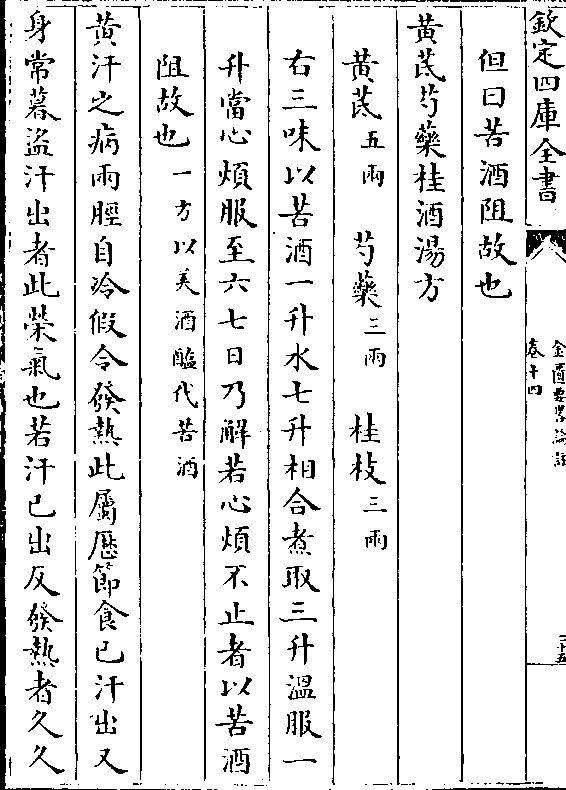 欽定四庫全書
金匱要畧論註
卷十四
二十五
但曰苦酒阻故也
黄芪芍藥桂酒湯方
黄芪五兩 芍藥三兩 桂枝三兩
右三味以苦酒一升水七升相合煮取三升溫服一
升當心煩服至六七日乃解若心煩不止者以苦酒
阻故也一方以美酒醯代苦酒
黄汗之病兩脛自冷假令發熱此屬歷節食已汗出又
身常暮盜汗出者此榮氣也若汗已出反發熱者久久